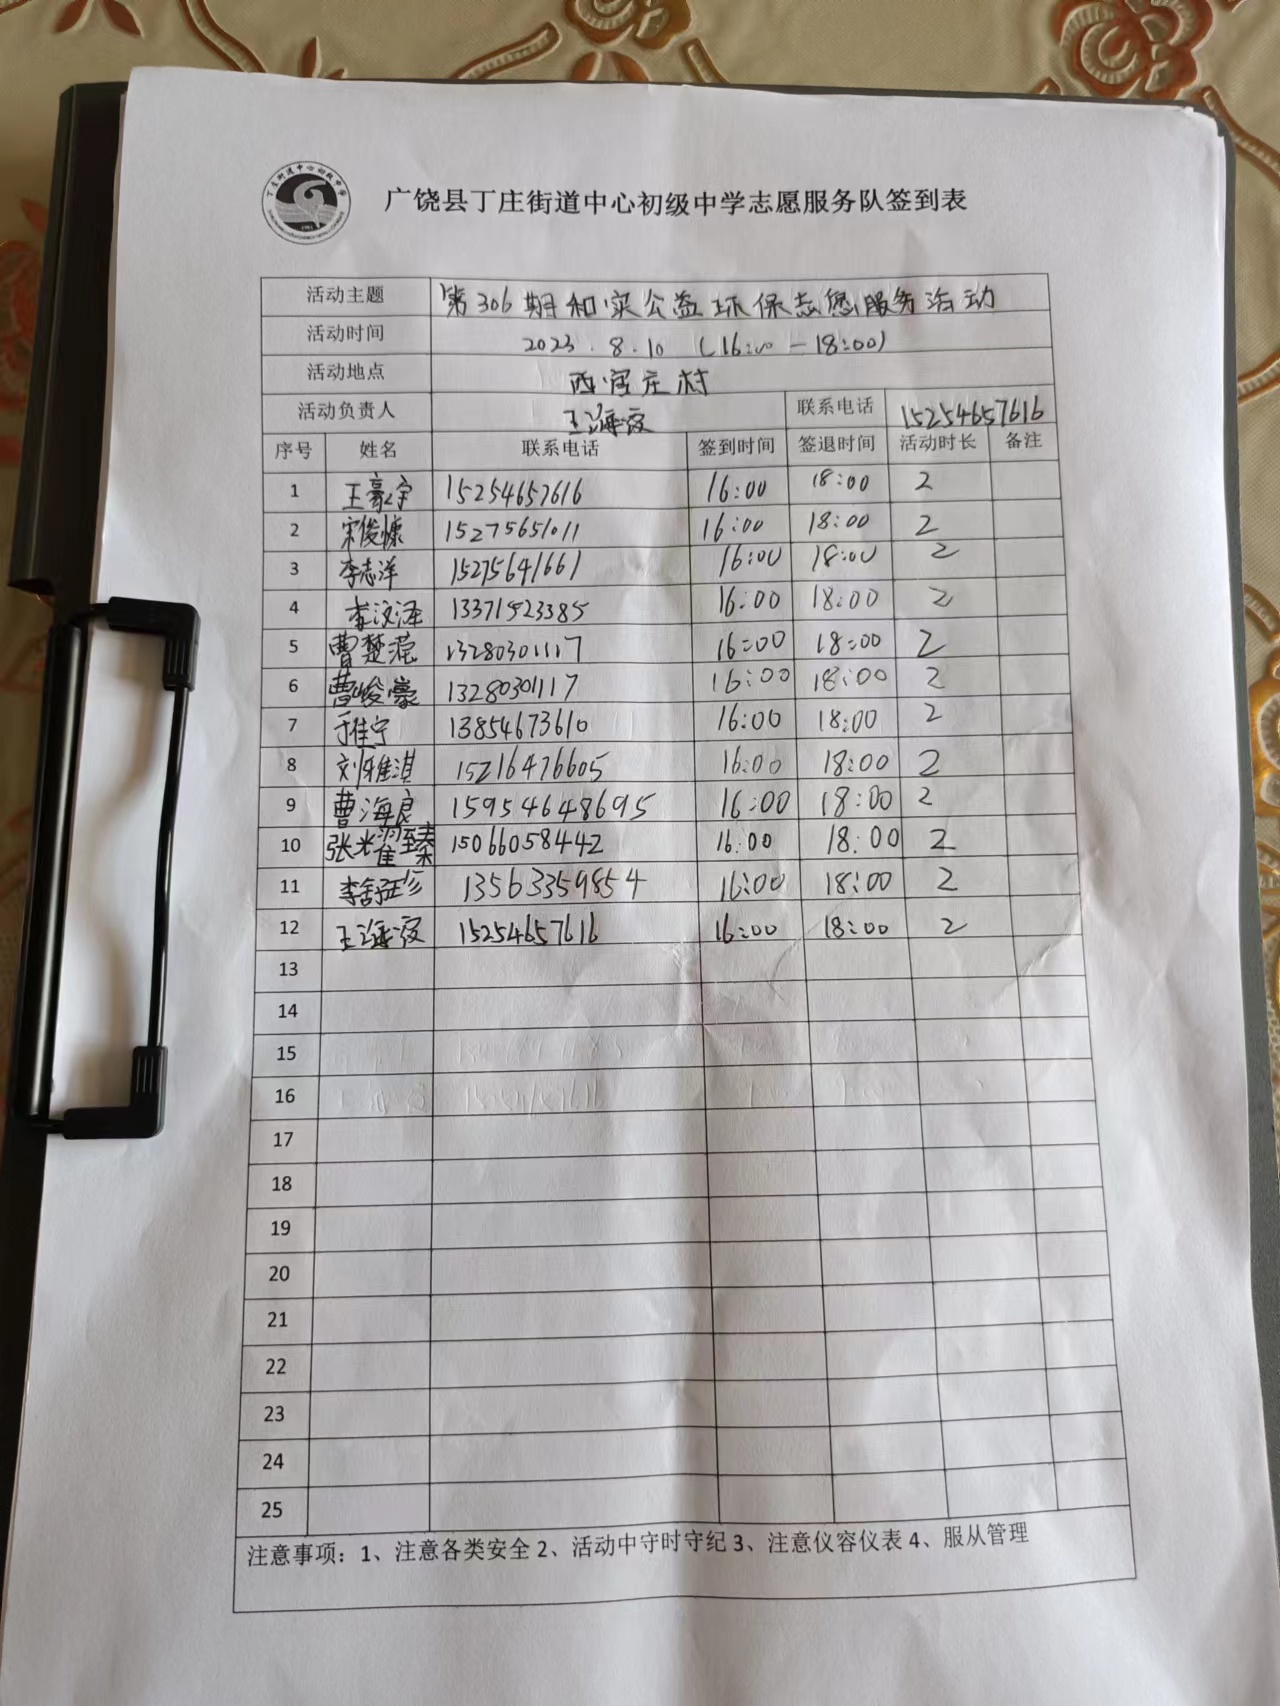 丁庄街道中心初级中学
广饶县丁庄街道中心初级中学志愿服务队签到表
活动主题 第306期和实公益环保志愿服务活动
活动时间 2023.8.10 (16:00-18:00)
活动地点 西官庄村
活动负责人 王海波 联系电话 15254657616
序号 姓名 联系电话 签到时间 签退时间 活动时长 备注
1 王豪宇 15254657616 16:00 18:00 2
2 宋俊慷 15275651011 16:00 18:00 2
3 李志洋 15275641661 16:00 18:00 2
4 李汶泽 13371523385 16:00 18:00 2
5 曹楚滢 13280301117 16:00 18:00 2
6 曹峻豪 13280301117 16:00 18:00 2
7 于佳宁 13854673610 16:00 18:00 2
8 刘雅淇 15216476605 16:00 18:00 2
9 曹海良 15954648695 16:00 18:00 2
10 张 15066058442 16:00 18:00 2
11 李舒 13563359854 16:00 18:00 2
12 王海波 15254657616 16:00 18:00 2
13
14
15
16
17
18
19
20
21
22
23
24
25
注意事项：1、注意各类安全 2、活动中守时守纪 3、注意仪容仪表 4、服从管理